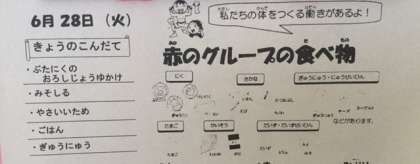 6月 28日 （火）
きょうのこんだて
・ぶたにくの
おろしじょうゆかけ
・みそしる
・やさいいため
・ごはん
・ぎゅうにゅう
私たちの体をつくる働きがあるよ！
赤のグループの食べ物
にく
さかな
ぎゅうにゅう・にゅうせいひん
たまご
かいそう
だいず・だいずせいひん
などがあります。